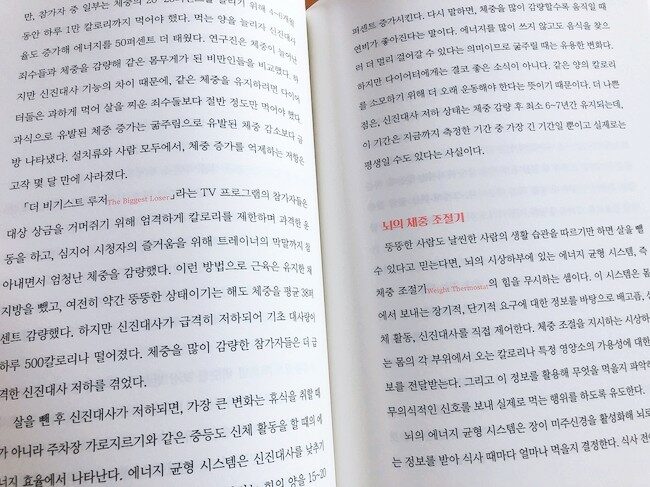 만, 참가자 중 일부는 체중의 20~25퍼센트를 늘리기 위해 4~6개월
동안 하루 1만 칼로리까지 먹어야 했다. 먹는 양을 늘리자 신진대사
율도 증가해 에너지를 50퍼센트 더 태웠다. 연구진은 체중이 늘어난
죄수들과 체중을 감량해 같은 몸무게가 된 비만인들을 비교했다. 하
지만 신진대사 기능의 차이 때문에, 같은 체중을 유지하려면 다이어
터들은 과하게 먹어 살을 찌운 죄수들보다 절반 정도만 먹어야 했다.
과식으로 유발된 체중 증가는 굶주림으로 유발된 체중 감소보다 금
방 나타났다. 설치류와 사람 모두에서, 체중 증가를 억제하는 저항은
고작 몇 달 만에 사라졌다.
「더 비기스트 루저The Biggest Loser」라는 TV 프로그램의 참가자들은
대상 상금을 거머쥐기 위해 엄격하게 칼로리를 제한하며 과격한 운
동을 하고, 심지어 시청자의 즐거움을 위해 트레이너의 막말까지 참
아내면서 엄청난 체중을 감량했다. 이런 방법으로 근육은 유지한 채
지방을 뺐고, 여전히 약간 뚱뚱한 상태이기는 해도 체중을 평균 38퍼
센트 감량했다. 하지만 신진대사가 급격히 저하되어 기초 대사량이
하루 500칼로리나 떨어졌다. 체중을 많이 감량한 참가자들은 더 급
격한 신진대사 저하를 겪었다.
살을 뺀 후 신진대사가 저하되면, 가장 큰 변화는 휴식을 취할 때
가 아니라 주차장 가로지르기와 같은 중등도 신체 활동을 할 때의 에
너지 효율에서 나타난다. 에너지 균형 시스템은 신진대사를 낮추기
힘의 양을 15~20
퍼센트 증가시킨다. 다시 말하면, 체중을 많이 감량할수록 움직일 때
연비가 좋아진다는 말이다. 에너지를 많이 쓰지 않고도 음식을 찾으
러 더 멀리 걸어갈 수 있다는 의미이므로 굶주릴 때는 유용한 변화다.
하지만 다이어터에게는 결코 좋은 소식이 아니다. 같은 양의 칼로리
를 소모하기 위해 더 오래 운동해야 한다는 뜻이기 때문이다. 더 나쁜
점은, 신진대사 저하 상태는 체중 감량 후 최소 6~7년간 유지되는데,
이 기간은 지금까지 측정한 기간 중 가장 긴 기간일 뿐이고 실제로는
평생일 수도 있다는 사실이다.
뇌의 체중 조절기
뚱뚱한 사람도 날씬한 사람의 생활 습관을 따르기만 하면 살을 뺄
수 있다고 믿는다면, 뇌의 시상하부에 있는 에너지 균형 시스템, 즉
체중 조절기Weight Thermostat의 힘을 무시하는 셈이다. 이 시스템은 몸
에서 보내는 장기적, 단기적 요구에 대한 정보를 바탕으로 배고픔, 신
체 활동, 신진대사를 직접 제어한다. 체중 조절을 지시하는 시상하
는 몸의 각 부위에서 오는 칼로리나 특정 영양소의 가용성에 대한
보를 전달받는다. 그리고 이 정보를 활용해 무엇을 먹을지 파악하
무의식적인 신호를 보내 실제로 먹는 행위를 하도록 유도한다.
뇌의 에너지 균형 시스템은 장이 미주신경을 활성화해 뇌로
는 정보를 받아 식사 때마다 얼마나 먹을지 결정한다. 식사 전에